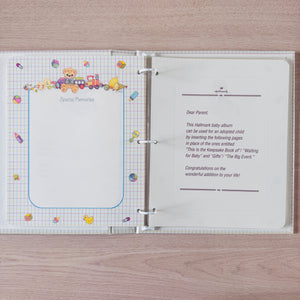 Special Memories
Dear Parent,
This Hallmark baby album
can be used for an adopted child
by inserting the following pages
in place of the ones entitled
"This is the Keepsake Book of"/ "Waiting
for Baby", and "Gifts"/ "The Big Event."
Congratulations on the
wonderful addition to your life!